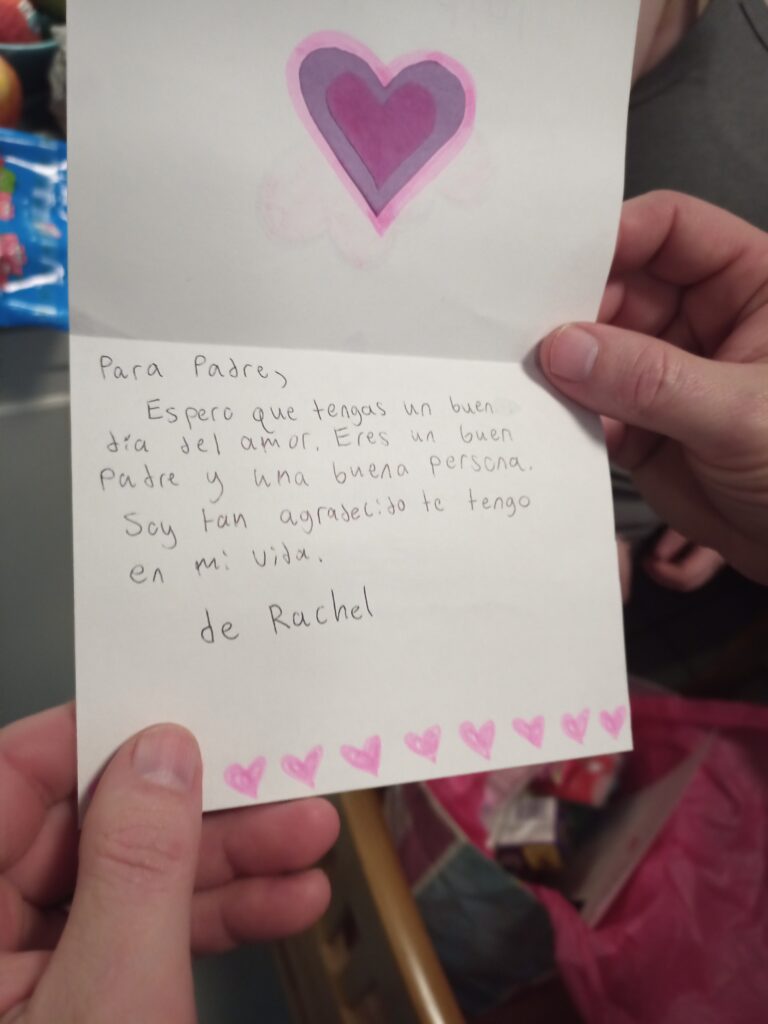 Para Padre,
Espero que tengas un buen
día del amor. Eres un buen
Padre y una buena persona.
Soy tan agradecido te tengo
en mi vida.
de Rachel